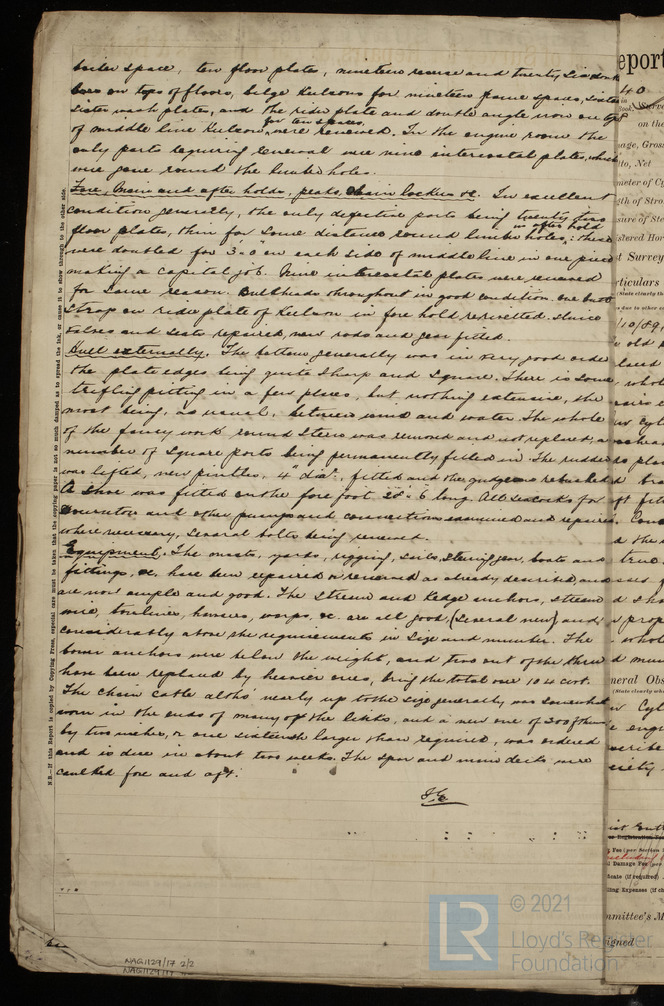 boiler space, ten floor plates, nineteen reverse and twenty six doub
bars on tops of floors, bilge Keelsons for nineteen frame spaces, sixteen
sister wash plates, and the rider plate and double angle iron on top
for ten spaces,
of middle line Keelson, were renewed. In the engine room the
only parts requiring renewal were nine intercostal plates, which
were gone round the limber holes.
Fore, Main and after holds, peaks, Chain lockers &c. In excellent
condition generally, the only defective parts being twenty two
in after hold
floor plates, thin for some distance round limber holes; these
were doubled for 3'-0" on each side of middle line in one piece
making a capital job. Nine intercostal plates were renewed
for same reason. Bulkheads throughout in good condition. One butt
strap on rider plate of Keelson in fore hold rerivetted. Sluice
valves and seats repaired, new rods and gear fitted.
Hull externally. The bottom generally was in very good order
the plate edges being quite sharp and square. There is some
trifling pitting in a few places, but nothing extensive, the
most being, as usual, between wind and water. The whole
of the fancy work round Stern was removed and not replaced, a
number of square ports being permanently filled in. The rudder
was lifted, new pintles, 4" diar, fitted and the gudgeons rebushed
A shoe was fitted on the fore foot 28'-6 long. All seacocks for
and other pumps and connections examined and repaired
where necessary, several bolts being renewed.
Equipment. The masts, yards, rigging, sails, steering gear, boats and
fittings, &c. have been repaired or renewed as already described, and
are now ample and good. The stream and Kedge anchors, stream
wire, towlines, hawsers, warps, &c. are all good, (several new) and
considerably above the requirements in size and number. The
bower anchors were below the weight, and two out of the three
have been replaced by heavier ones, bring the total over 104 cwt.
The chain cable altho' nearly up to the size generally was somewhat
worn in the ends of many of the links, and a new one of 300 fthms
by two inches, or one sixteenth larger than required, was ordered
and is due in about two weeks. The spar and main decks were
caulked fore and aft.
N.B.—If this Report is copied by Copying Press, especial care must be taken that the copying paper is not so much damped as to spread the ink, or cause it to show through to the other side.
NAG1129/17 2/2
NAG1129/17
eport
40
Book
on the
nage, Gross
itto, Net
meter of Cy
gth of Stro
sure of Ste
istered Hor
t Survey
rticulars
(State clearly th
/10/89,
e old
true.
neral Obs
(State clearly wh
Registration Fee
Fee (per Section
including
Damage Fee (per
icate (if required)
lling Expenses (if ch
mmittee's M
igned
LR
© 2021
Lloyd's Register
Foundation